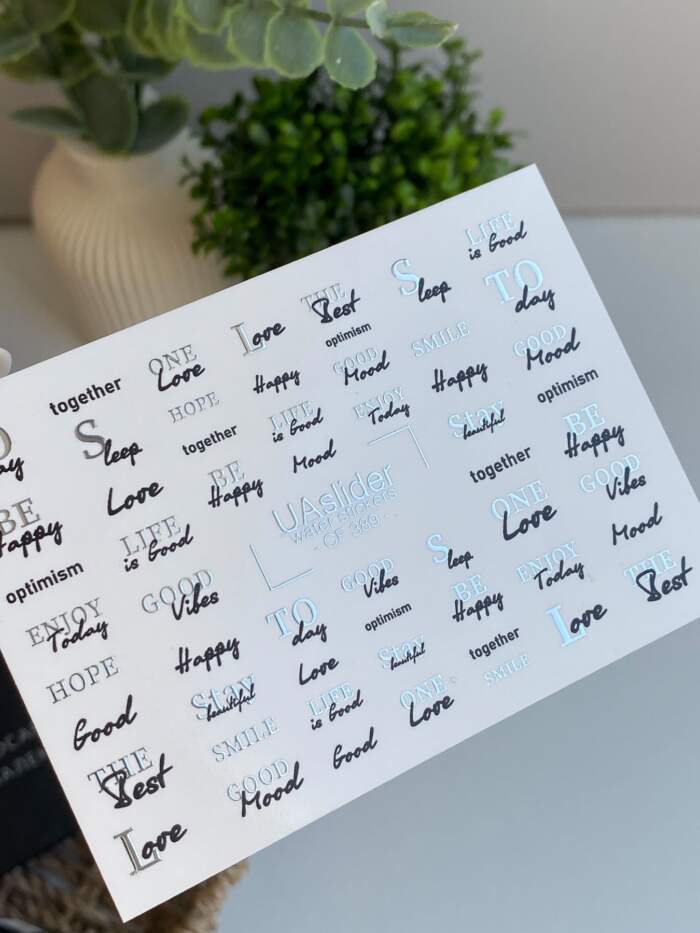 together
ONE
Love
Love
THE
Best
Sleep
LIFE
is Good
Sleep
HOPE
Happy
optimism
GOOD
Mood
SMILE
TO
day
BE
Happy
Love
together
LIFE
is Good
ENJOY
Today
Happy
GOOD
Mood
optimism
LIFE
is Good
BE
Happy
Mood
Stay
beautiful
BE
Happy
optimism
GOOD
Vibes
UAslider
water stickers
- OF 389 -
together
ONE
Love
GOOD
Vibes
ENJOY
Today
Happy
TO
day
GOOD
Vibes
Sleep
ENJOY
Today
Mood
HOPE
Stay
beautiful
Love
optimism
BE
Happy
together
THE
Best
Good
SMILE
LIFE
is Good
Stay
beautiful
ONE
Love
SMILE
Love
THE
Best
GOOD
Mood
Good
Love